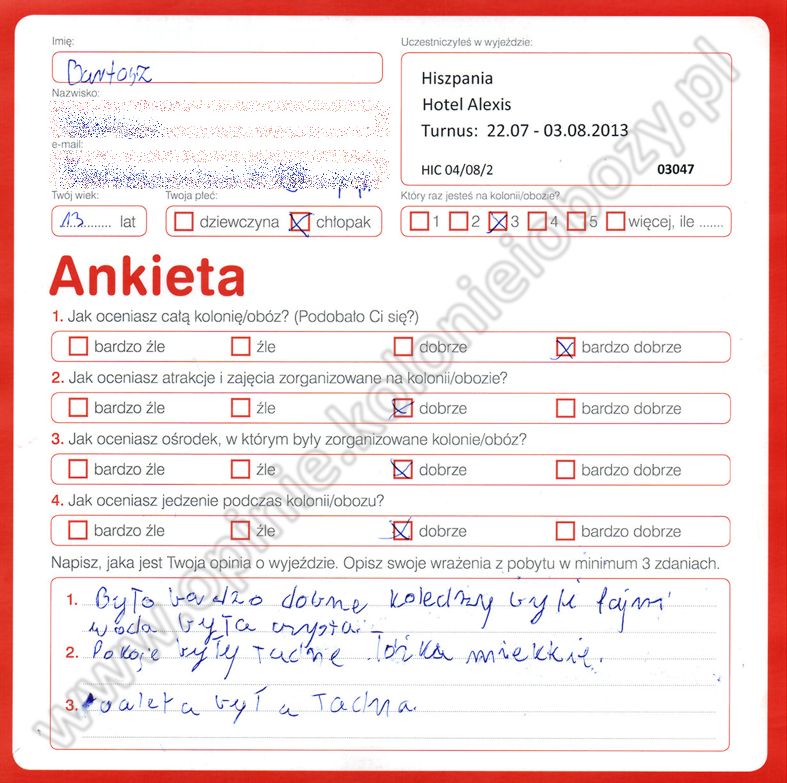 Imię:
Bartosz
Uczestniczyłeś w wyjeździe:
Hiszpania
Hotel Alexis
Turnus: 22.07 - 03.08.2013
HIC 04/08/2
03047
Nazwisko:
e-mail:
Twój wiek:
13 ........ lat
Twoja płeć:
dziewczyna chłopak
Który raz jesteś na kolonii/obozie?
1 2 3 4 5 więcej, ile .......
Ankieta
1. Jak oceniasz całą kolonię/obóz? (Podobało Ci się?)
bardzo źle źle dobrze bardzo dobrze
2. Jak oceniasz atrakcje i zajęcia zorganizowane na kolonii/obozie?
bardzo źle źle dobrze bardzo dobrze
3. Jak oceniasz ośrodek, w którym były zorganizowane kolonie/obóz?
bardzo źle źle dobrze bardzo dobrze
4. Jak oceniasz jedzenie podczas kolonii/obozu?
bardzo źle źle dobrze bardzo dobrze
Napisz, jaka jest Twoja opinia o wyjeździe. Opisz swoje wrażenia z pobytu w minimum 3 zdaniach.
1. Było bardzo dobrze koledzy byli fajni
woda była czysta.
2. Pokoje były ładne łóżka miekkie.
3. toaleta był a ładna.
www.opinie.kolonieiobozy.pl